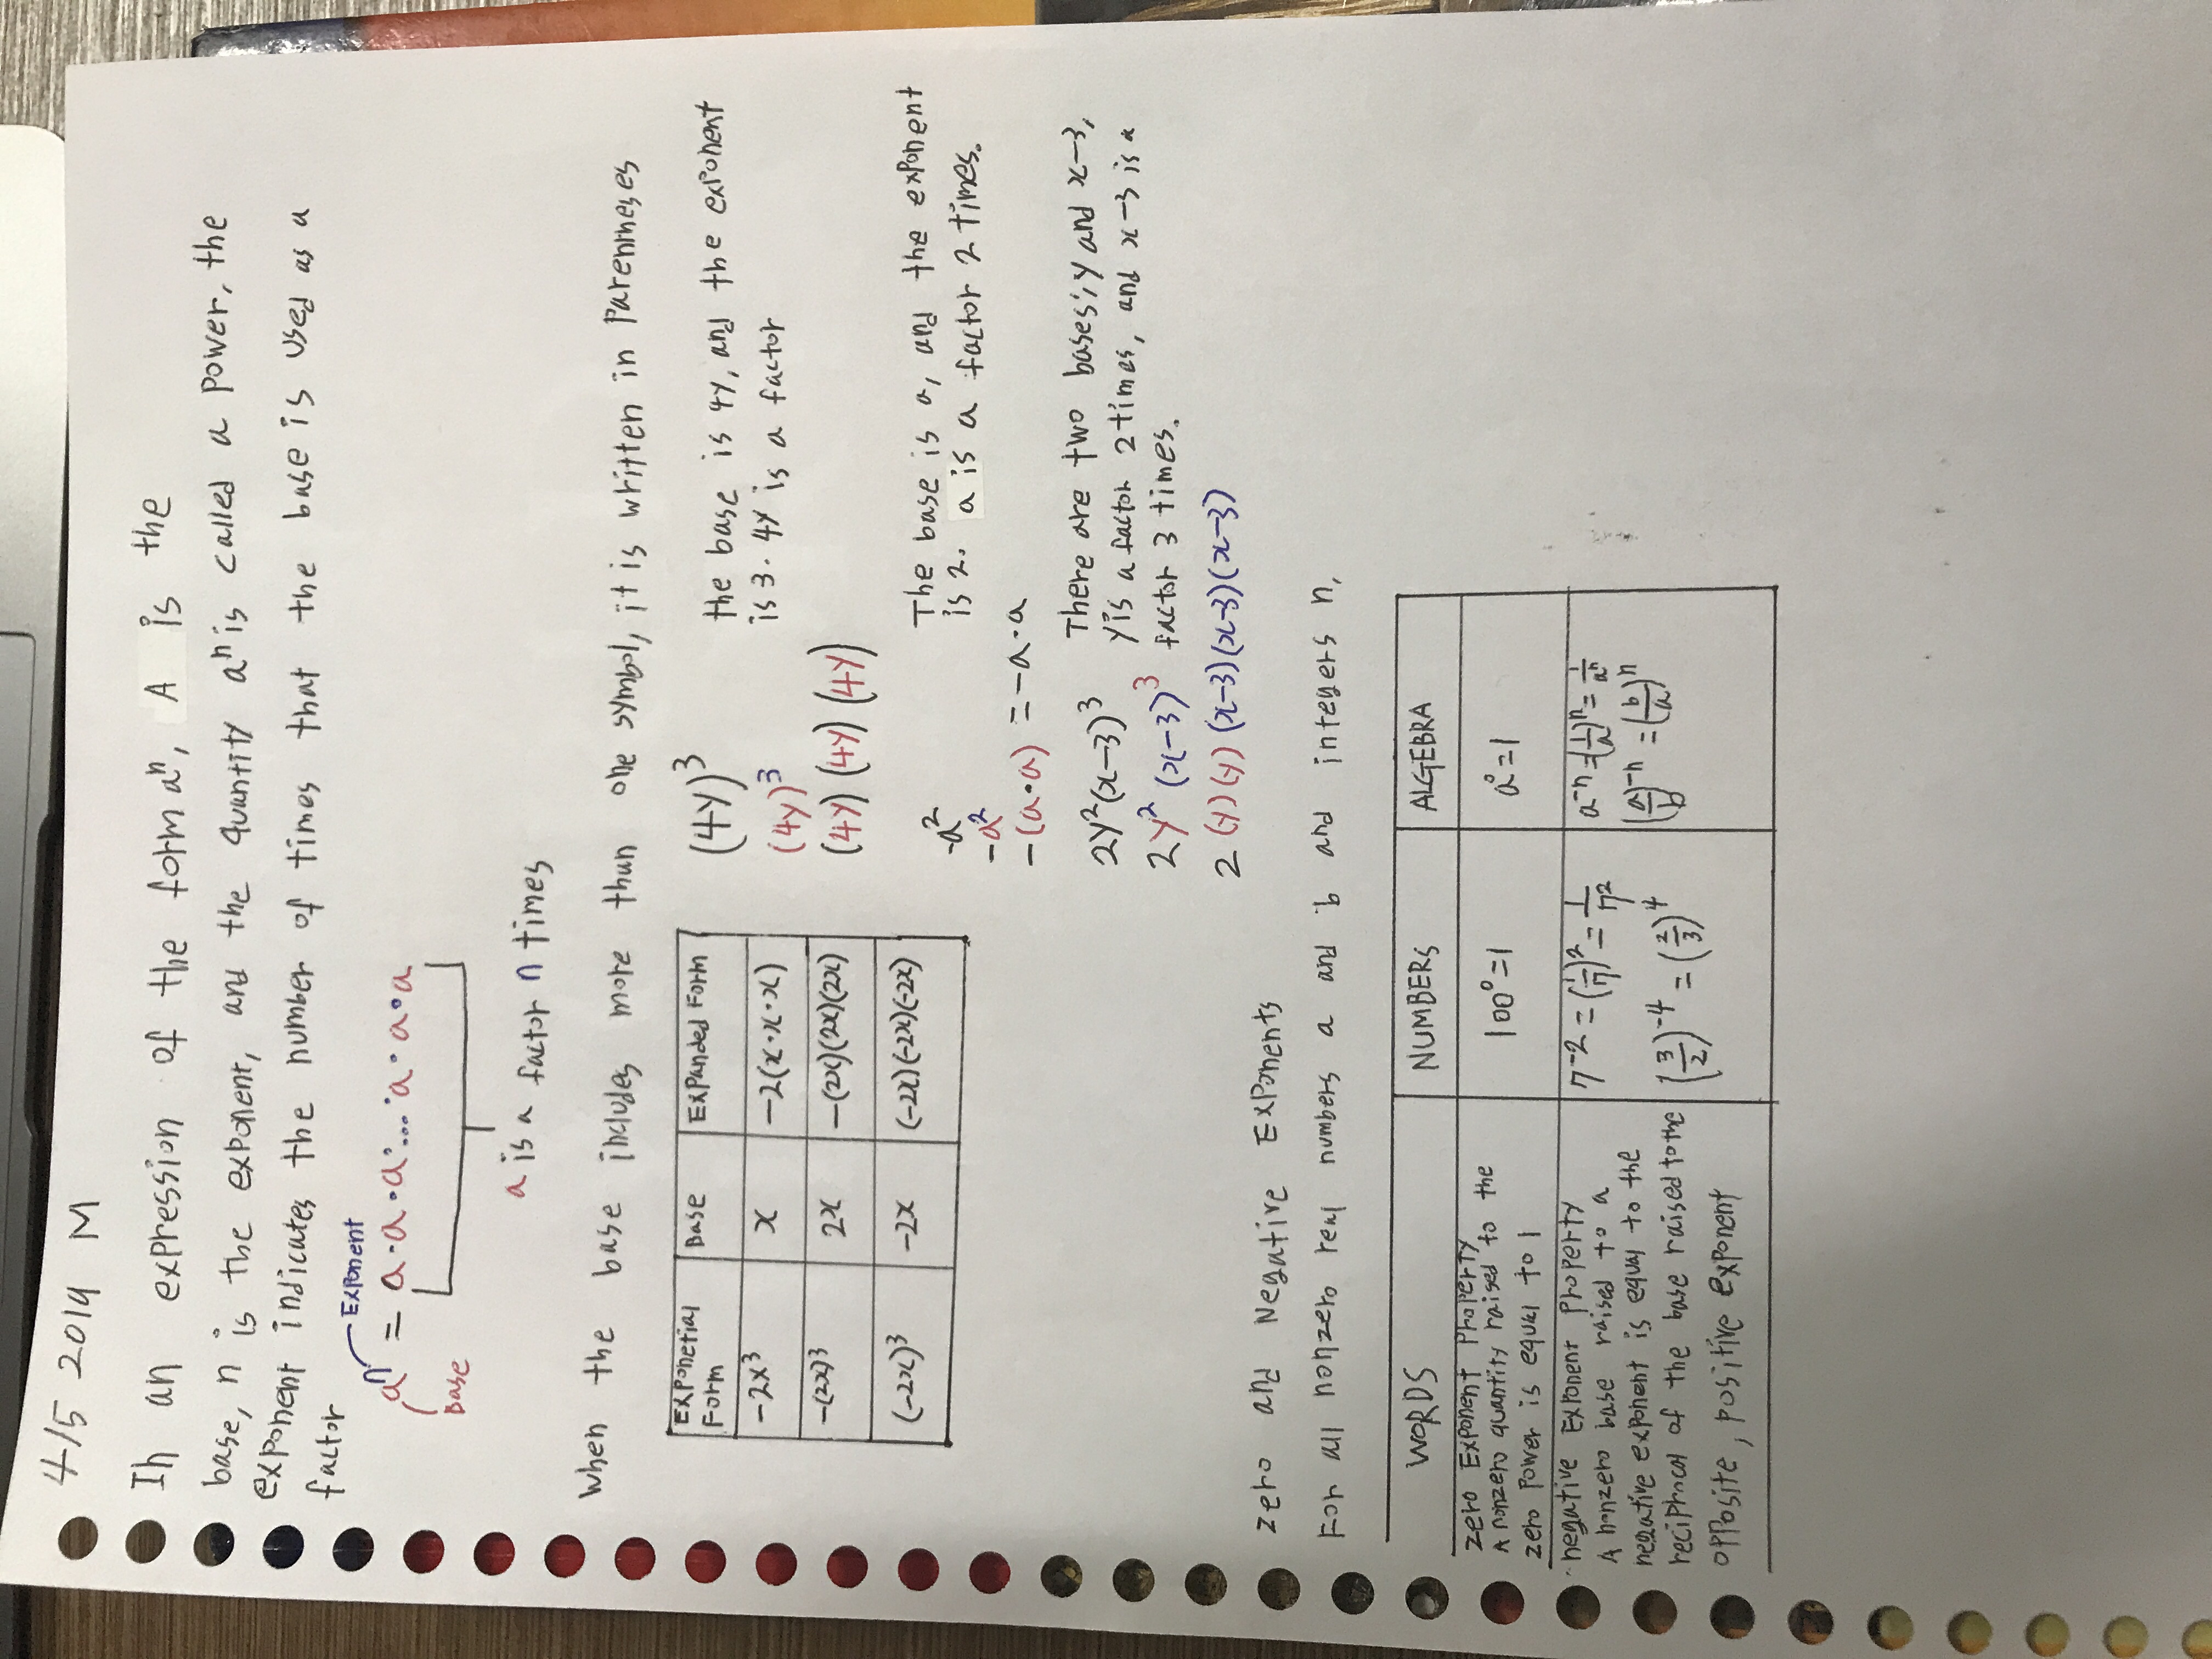 4/5 2019 M
In an expression of the form aⁿ, A is the
base, n is the exponent, and the quantity aⁿ is called a power, the
exponent indicates the number of times that the base is used as a
factor
Exponent
aⁿ = a·a·a·...·a·a·a
Base
a is a factor n times
when the base includes more than one symbol, it is written in Parentheses
Exponetial Form | Base | Expanded Form
-2x³ | x | -2(x·x·x)
-(2x)³ | 2x | -(2x)(2x)(2x)
(-2x)³ | -2x | (-2x)(-2x)(-2x)
(4y)³ the base is 4y, and the exponent
(4y)³ is 3. 4y is a factor
(4y)(4y)(4y)
-a² The base is a, and the exponent
-a² is 2. a is a factor 2 times.
-(a·a) = -a·a
2y²(x-3)³ There are two bases; y and x-3,
y is a factor 2 times, and x-3 is a
2y²(x-3)³ factor 3 times.
2(y)(y)(x-3)(x-3)(x-3)
zero and Negative Exponents
For all nonzero real numbers a and b and integers n,
WORDS | NUMBERS | ALGEBRA
zero Exponent Property
A nonzero quantity raised to the
zero power is equal to 1
100⁰=1
a⁰=1
negative Exponent Property
A nonzero base raised to a
negative exponent is equal to the
reciprocal of the base raised to the
opposite, positive exponent
7⁻² = (1/7)² = 1/7²
(3/2)⁻⁴ = (2/3)⁴
a⁻ⁿ = (1/a)ⁿ = 1/aⁿ
(a/b)⁻ⁿ = (b/a)ⁿ